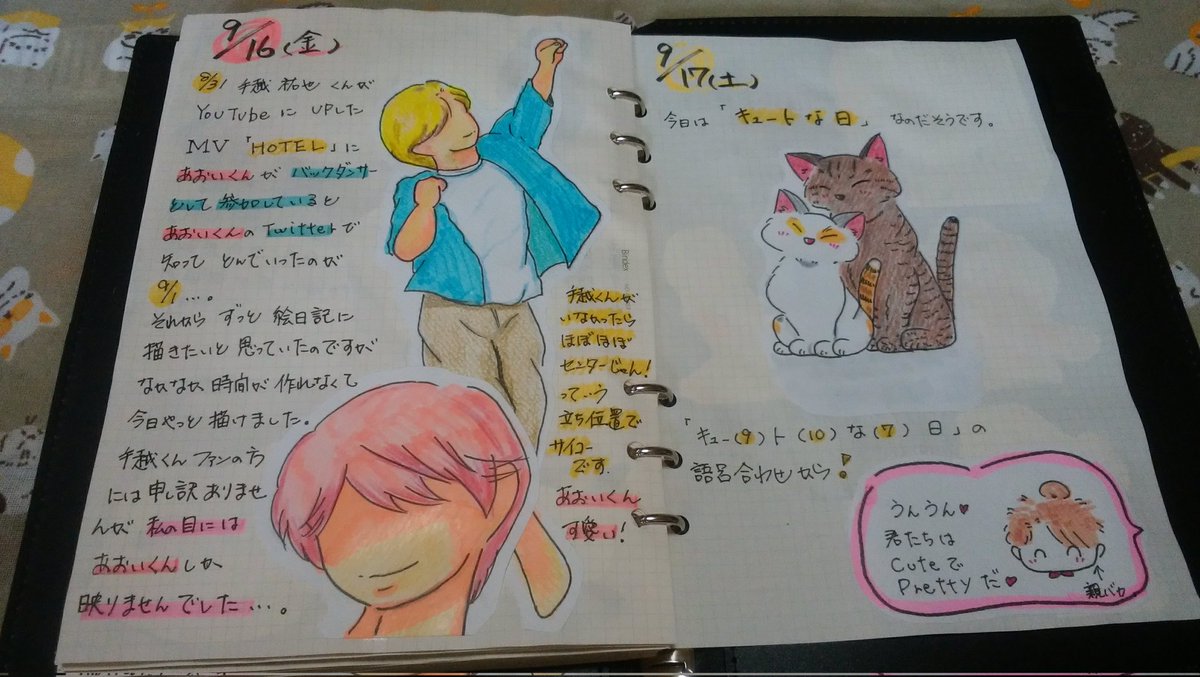 9/16(金)
8/31 手越 祐也 くんが
YouTubeに UPした
MV「HOTEL」に
あおいくんが バックダンサー
として 参加していると
あおいくんの Twitterで
知って とんでいったのが
9/1…。
それから ずっと 絵日記に
描きたいと 思っていたのですが
なかなか 時間が 作れなくて
今日やっと 描けました。
手越くん ファンの方
には 申し訳 ありませ
んが 私の目には
あおいくんしか
映りませんでした…。
手越くんが
いなかったら
ほぼほぼ
センターじゃん!
っていう
立ち位置で
サイコー
です。
あおいくん
可愛い!
Bindex
9/17(土)
今日は「キュートな日」なのだそうです。
「キュー(9)ト(10)な(7)日」の
語呂合わせから!
うんうん♥
君たちは
Cuteで
Prettyだ♥
↑
親バカ